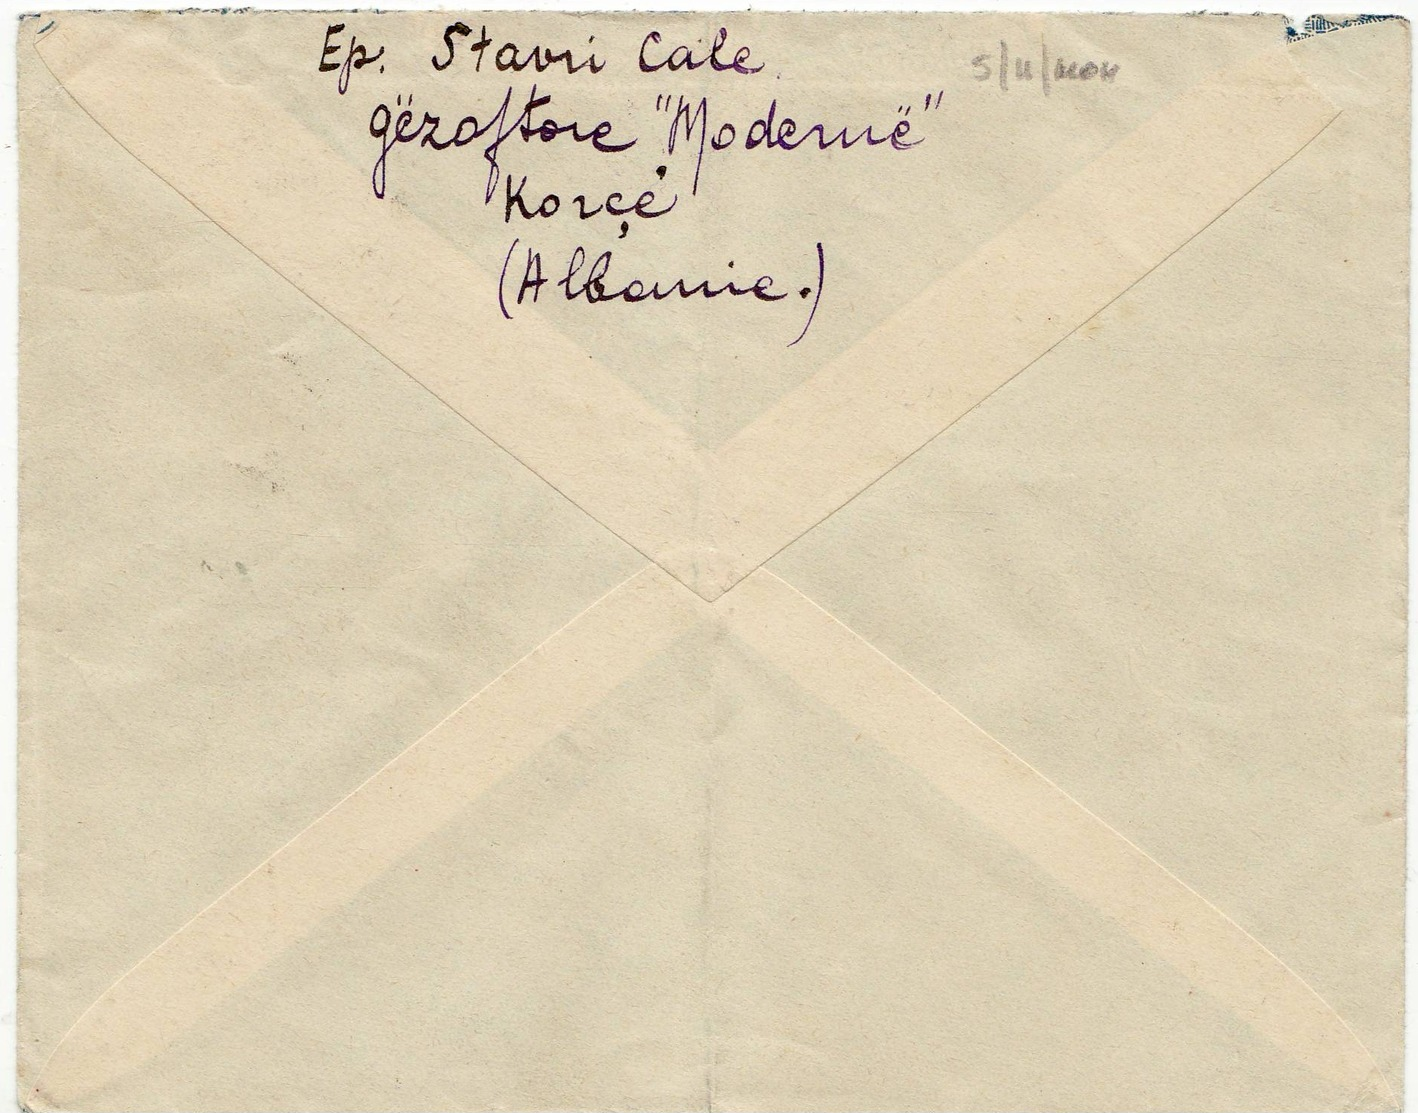 Ep. Stavri Cale
gëzoftore "Modernë"
Korçë
(Albanie.)